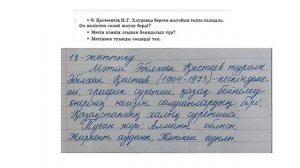 • Ә. Қастеевтің И.Г. Хлудовқа берген жауабын топта талқыла.
Ол неліктен солай жауап берді?
• Мәтін кімнің атынан баяндалып тұр?
• Мәтіннен туынды сөздерді тап.
18-жаттығу
Мәтін Әбілхан Қастеев туралы.
Әбілхан Қастеев (1904-1973) кескіндеме-
ші, график суретші, қазақ бейнелеу
өнерінің негізін салушылардың бірі,
Қазақстанның халық суретшісі.
Туған жері: Алматы облысы,
Жаркент ауданы, Жетіген ауылы.